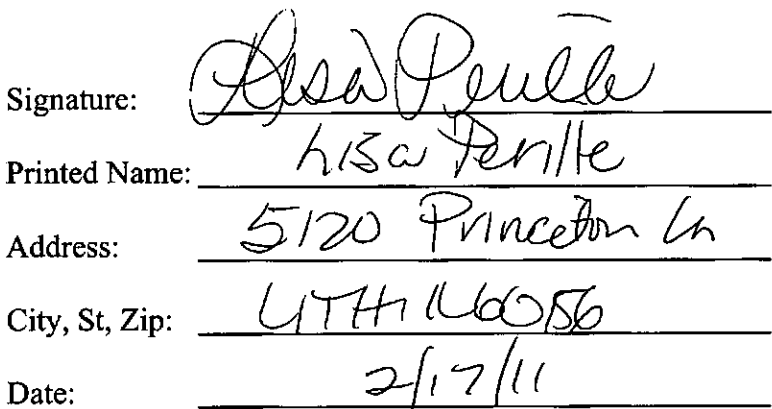 Signature: Lisa Perille
Printed Name: Lisa Perille
Address: 5120 Princeton Ln
City, St, Zip: LITH IL 60156
Date: 2/17/11